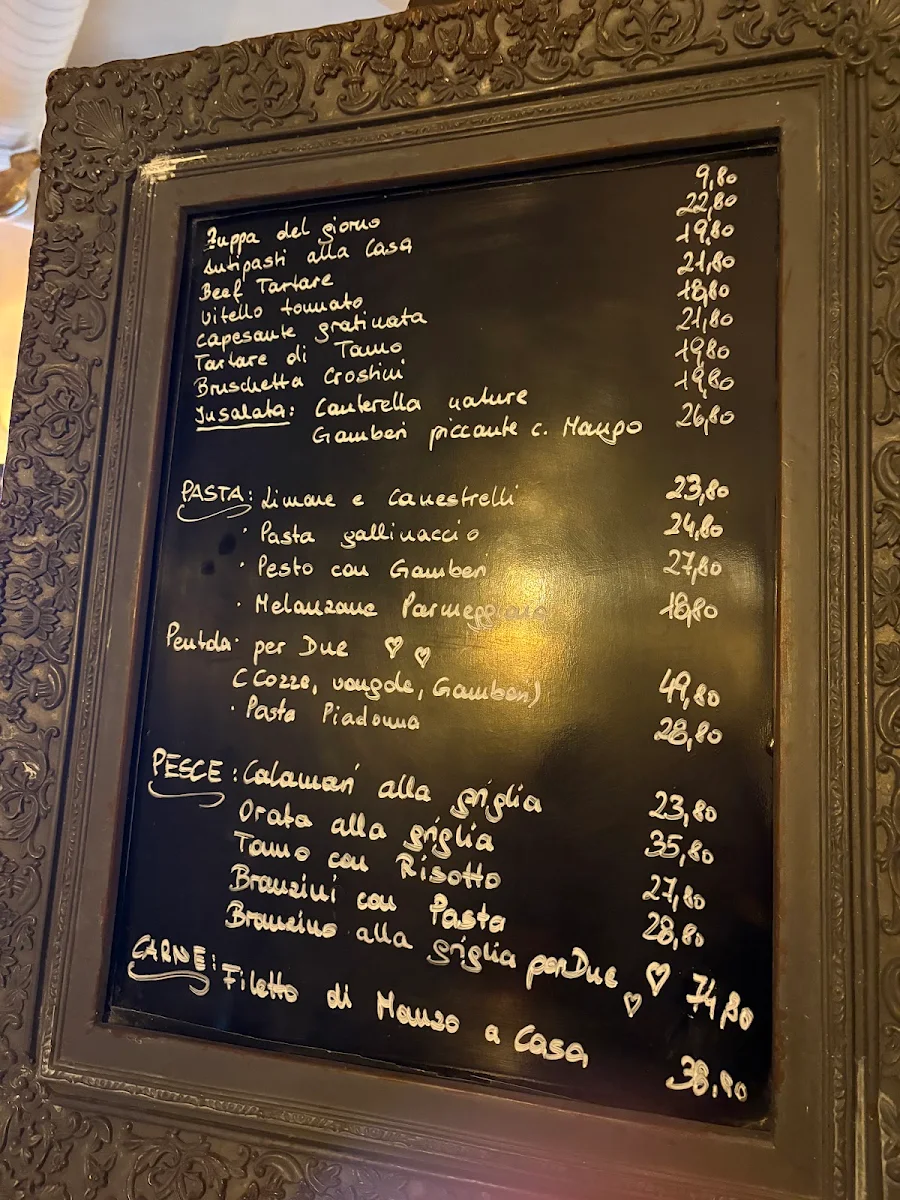 Zuppa del giorno 9,80
Antipasti alla Casa 22,80
Beef Tartare 19,80
Vitello tonnato 21,80
capesante gratinata 18,80
Tartare di Tonno 21,80
Bruschetta Crostini 19,80
Insalata: Canterella nature 19,80
Gamberi piccante c. Mango 26,80
PASTA: Limone e canestrelli 23,80
· Pasta gallinaccio 24,80
· Pesto con Gamberi 27,80
· Melanzane Parmeggiana 18,80
Pentola· per Due ♡ ♡
(Cozze, vongole, Gamberi) 49,80
· Pasta Piadonna 28,80
PESCE: Calamari alla griglia 23,80
Orata alla griglia 35,80
Tonno con Risotto 27,80
Branzini con Pasta 28,80
Branzino alla griglia per Due ♡ ♡ 74,80
CARNE: Filetto di Manzo a Casa 38,90